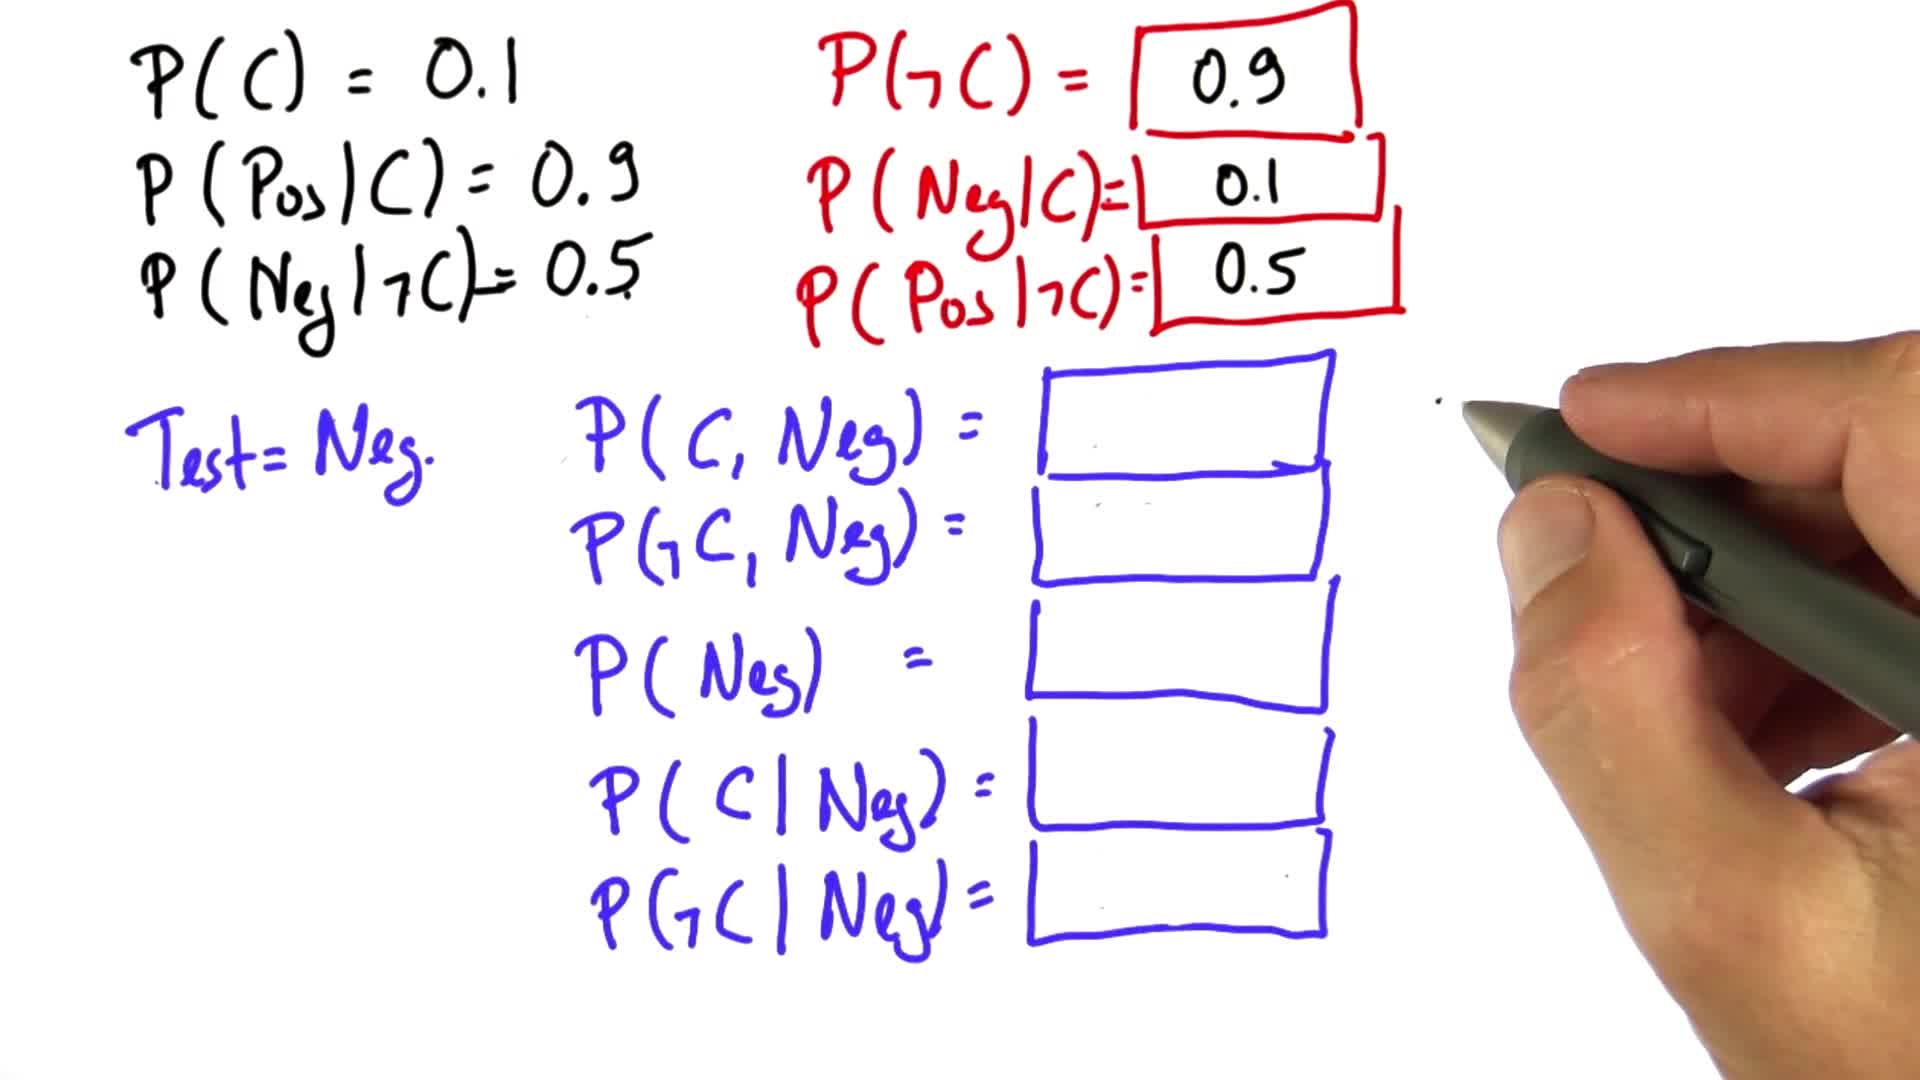 P(C) = 0.1
P(Pos|C) = 0.9
P(Neg|¬C) = 0.5
P(¬C) = 0.9
P(Neg|C) = 0.1
P(Pos|¬C) = 0.5
Test = Neg.
P(C, Neg) =
P(¬C, Neg) =
P(Neg) =
P(C|Neg) =
P(¬C|Neg) =